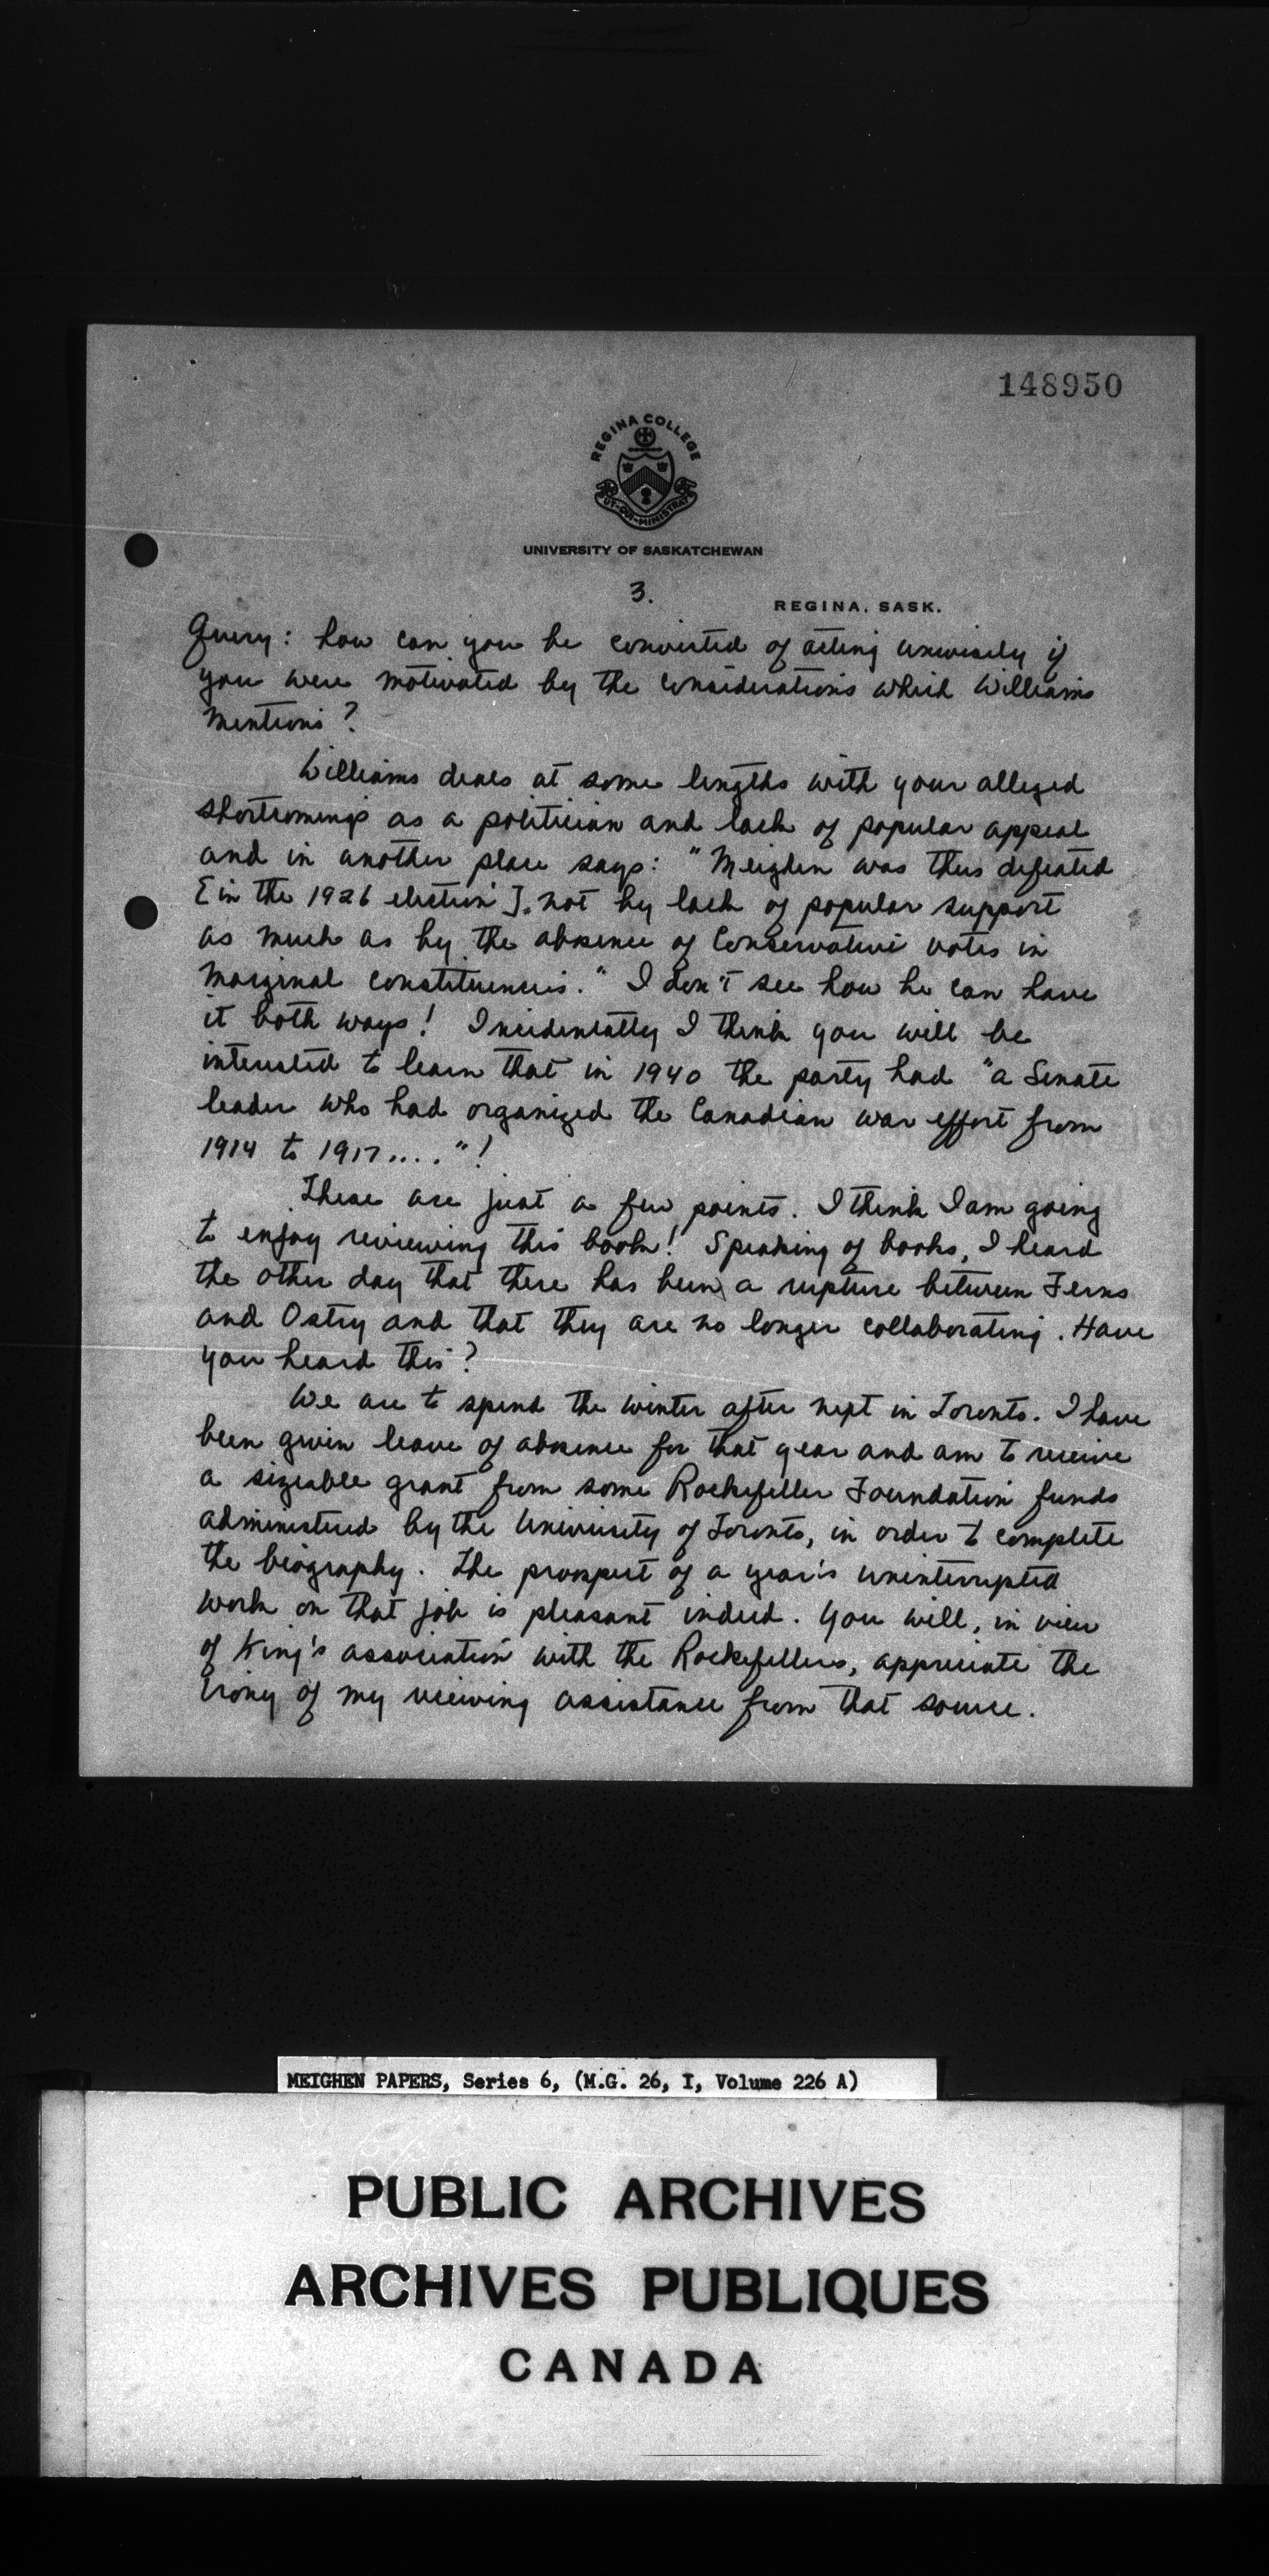 148950
REGINA COLLEGE
UT·QUI·MINISTRAT
UNIVERSITY OF SASKATCHEWAN
3.
REGINA, SASK.
Query: how can you be convicted of acting unwisely if
you were motivated by the considerations which Williams
mentions?
Williams deals at some lengths with your alleged
shortcomings as a politician and lack of popular appeal
and in another place says: "Meighen was thus defeated
[in the 1926 election], not by lack of popular support
as much as by the absence of Conservative votes in
marginal constituencies." I don't see how he can have
it both ways! Incidentally I think you will be
interested to learn that in 1940 the party had "a Senate
leader who had organized the Canadian war effort from
1914 to 1917...."!
These are just a few points. I think I am going
to enjoy reviewing this book! Speaking of books, I heard
the other day that there has been a rupture between Ferns
and Ostry and that they are no longer collaborating. Have
you heard this?
We are to spend the winter after next in Toronto. I have
been given leave of absence for that year and am to receive
a sizeable grant from some Rockefeller Foundation funds
administered by the University of Toronto, in order to complete
the biography. The prospect of a year's uninterrupted
work on that job is pleasant indeed. You will, in view
of King's association with the Rockefellers, appreciate the
irony of my receiving assistance from that source.
MEIGHEN PAPERS, Series 6, (M.G. 26, I, Volume 226 A)
PUBLIC ARCHIVES
ARCHIVES PUBLIQUES
CANADA